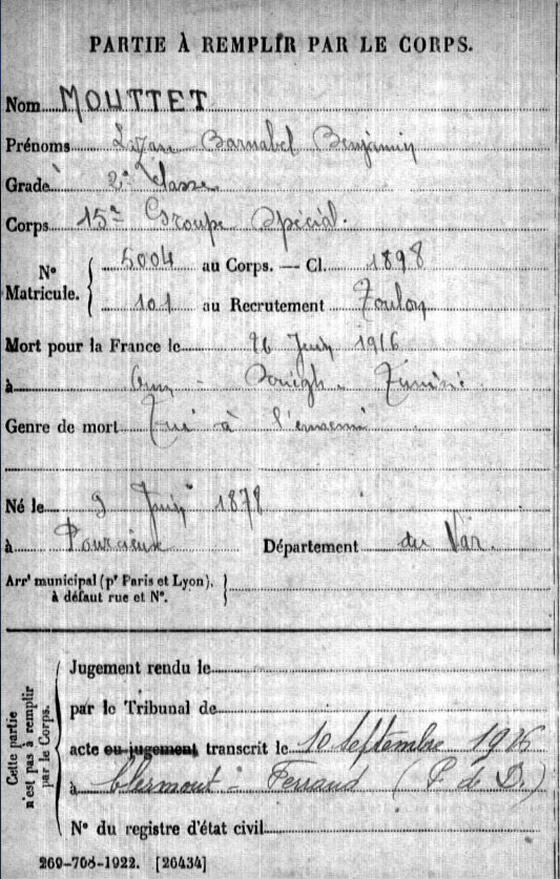 PARTIE À REMPLIR PAR LE CORPS.
Nom MOUTTET
Prénoms Lazare Barnabel Benjamin
Grade 2e Classe
Corps 15e Groupe Spécial.
N° Matricule. 5004 au Corps. — Cl. 1898
101 au Recrutement Toulon
Mort pour la France le 26 Juin 1916
à Oum - Souigh - Tunisie
Genre de mort Tué à l'ennemi
Né le 9 Juin 1878
à Pourcieux Département du Var.
Arrt municipal (pr Paris et Lyon),
à défaut rue et N°.
Cette partie n'est pas à remplir par le Corps.
Jugement rendu le
par le Tribunal de
acte ou jugement transcrit le 10 Septembre 1916
à Clermont - Ferrand (P. de D.)
N° du registre d'état civil
269-708-1922. [26434]